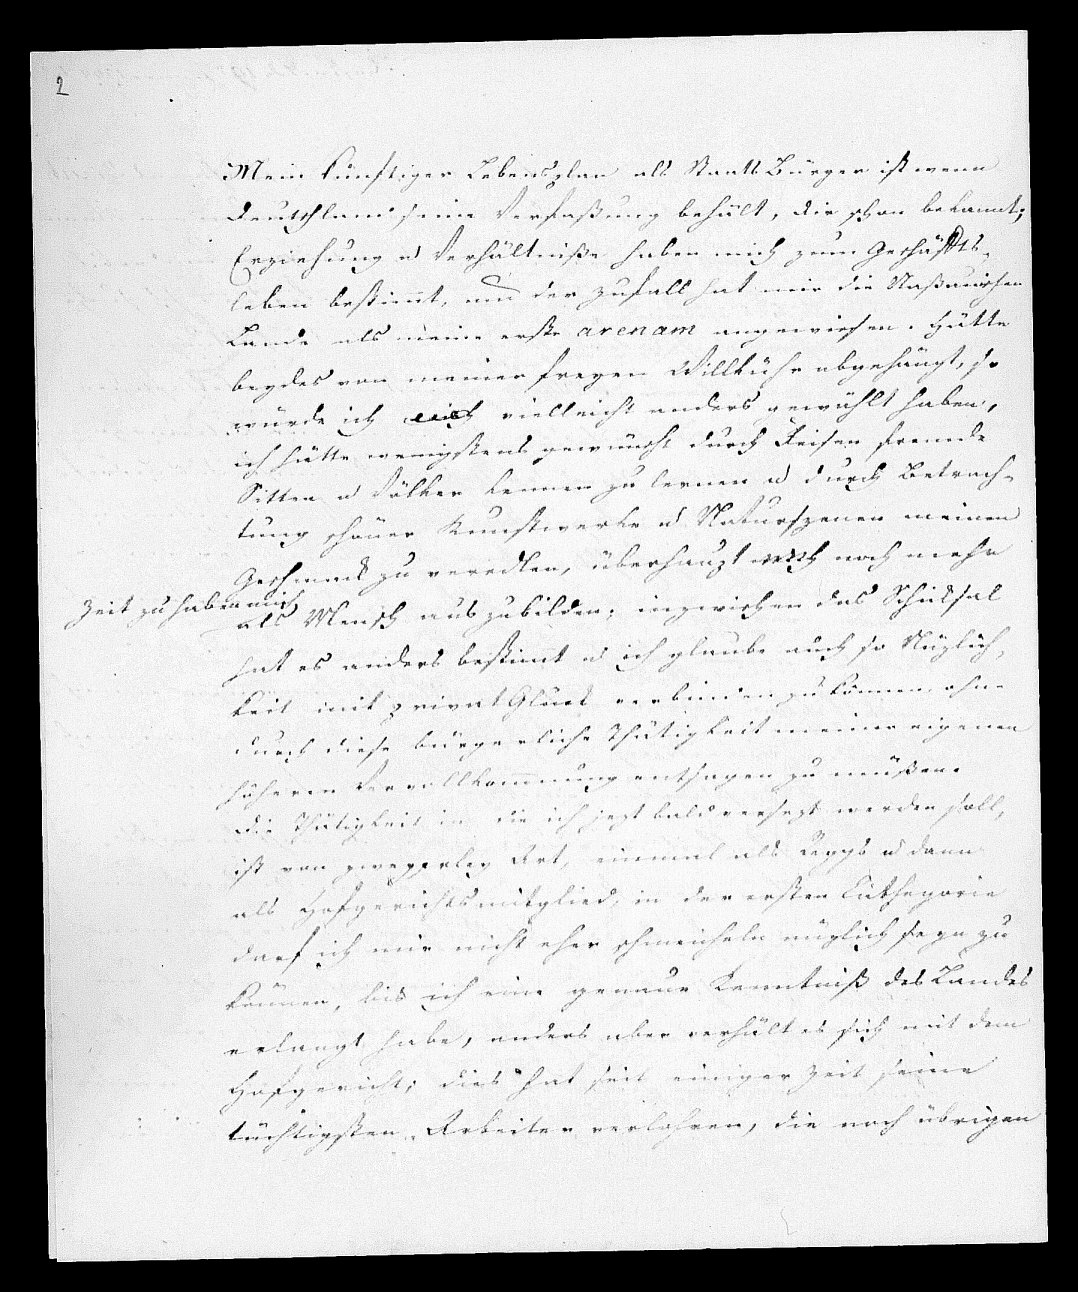 2
Mein künftiger Lebensplan als StaatsBürger ist wenn
Deutschland seine Verfaßung behält, dir schon bekannt;
Erziehung u Verhältniße haben mich zum Geschäfts-
leben bestimt, und der Zufall hat mir die Naßauischen
Lande als meine erste arenam angewiesen. Hätte
beydes von meiner freyen Willkühr abgehängt, so
würde ich vielleicht anders gewählt haben,
ich hätte wenigstens gewünscht durch Reisen fremde
Sitten u Völker kennen zu lernen u durch Betrach-
tung schöner Kunstwerke u Naturszenen meinen
Geschmack zu veredlen, überhaupt noch mehr
Zeit zu haben mich
als Mensch auszubilden; inzwischen das Schiksal
hat es anders bestimt u ich glaube auch so Nüzlich-
keit mit privat Glück verbinden zu können, ohne
durch diese bürgerliche Thätigkeit meiner eigenen
höheren Vervollkommnung entsagen zu müßen.
Die Thätigkeit in die ich jezt bald versezt werden soll,
ist von zweyerley Art, einmal als u dann
als Hofgerichtsmitglied, in der ersten Cathegorie
darf ich mir nicht eher schmeicheln nüzlich seyn zu
können, bis ich eine genaue Kenntniß des Landes
erlangt habe, anders aber verhält es sich mit dem
Hofgericht; dies hat seit einiger Zeit seine
tüchtigsten Arbeiter verlohren, die noch übrigen